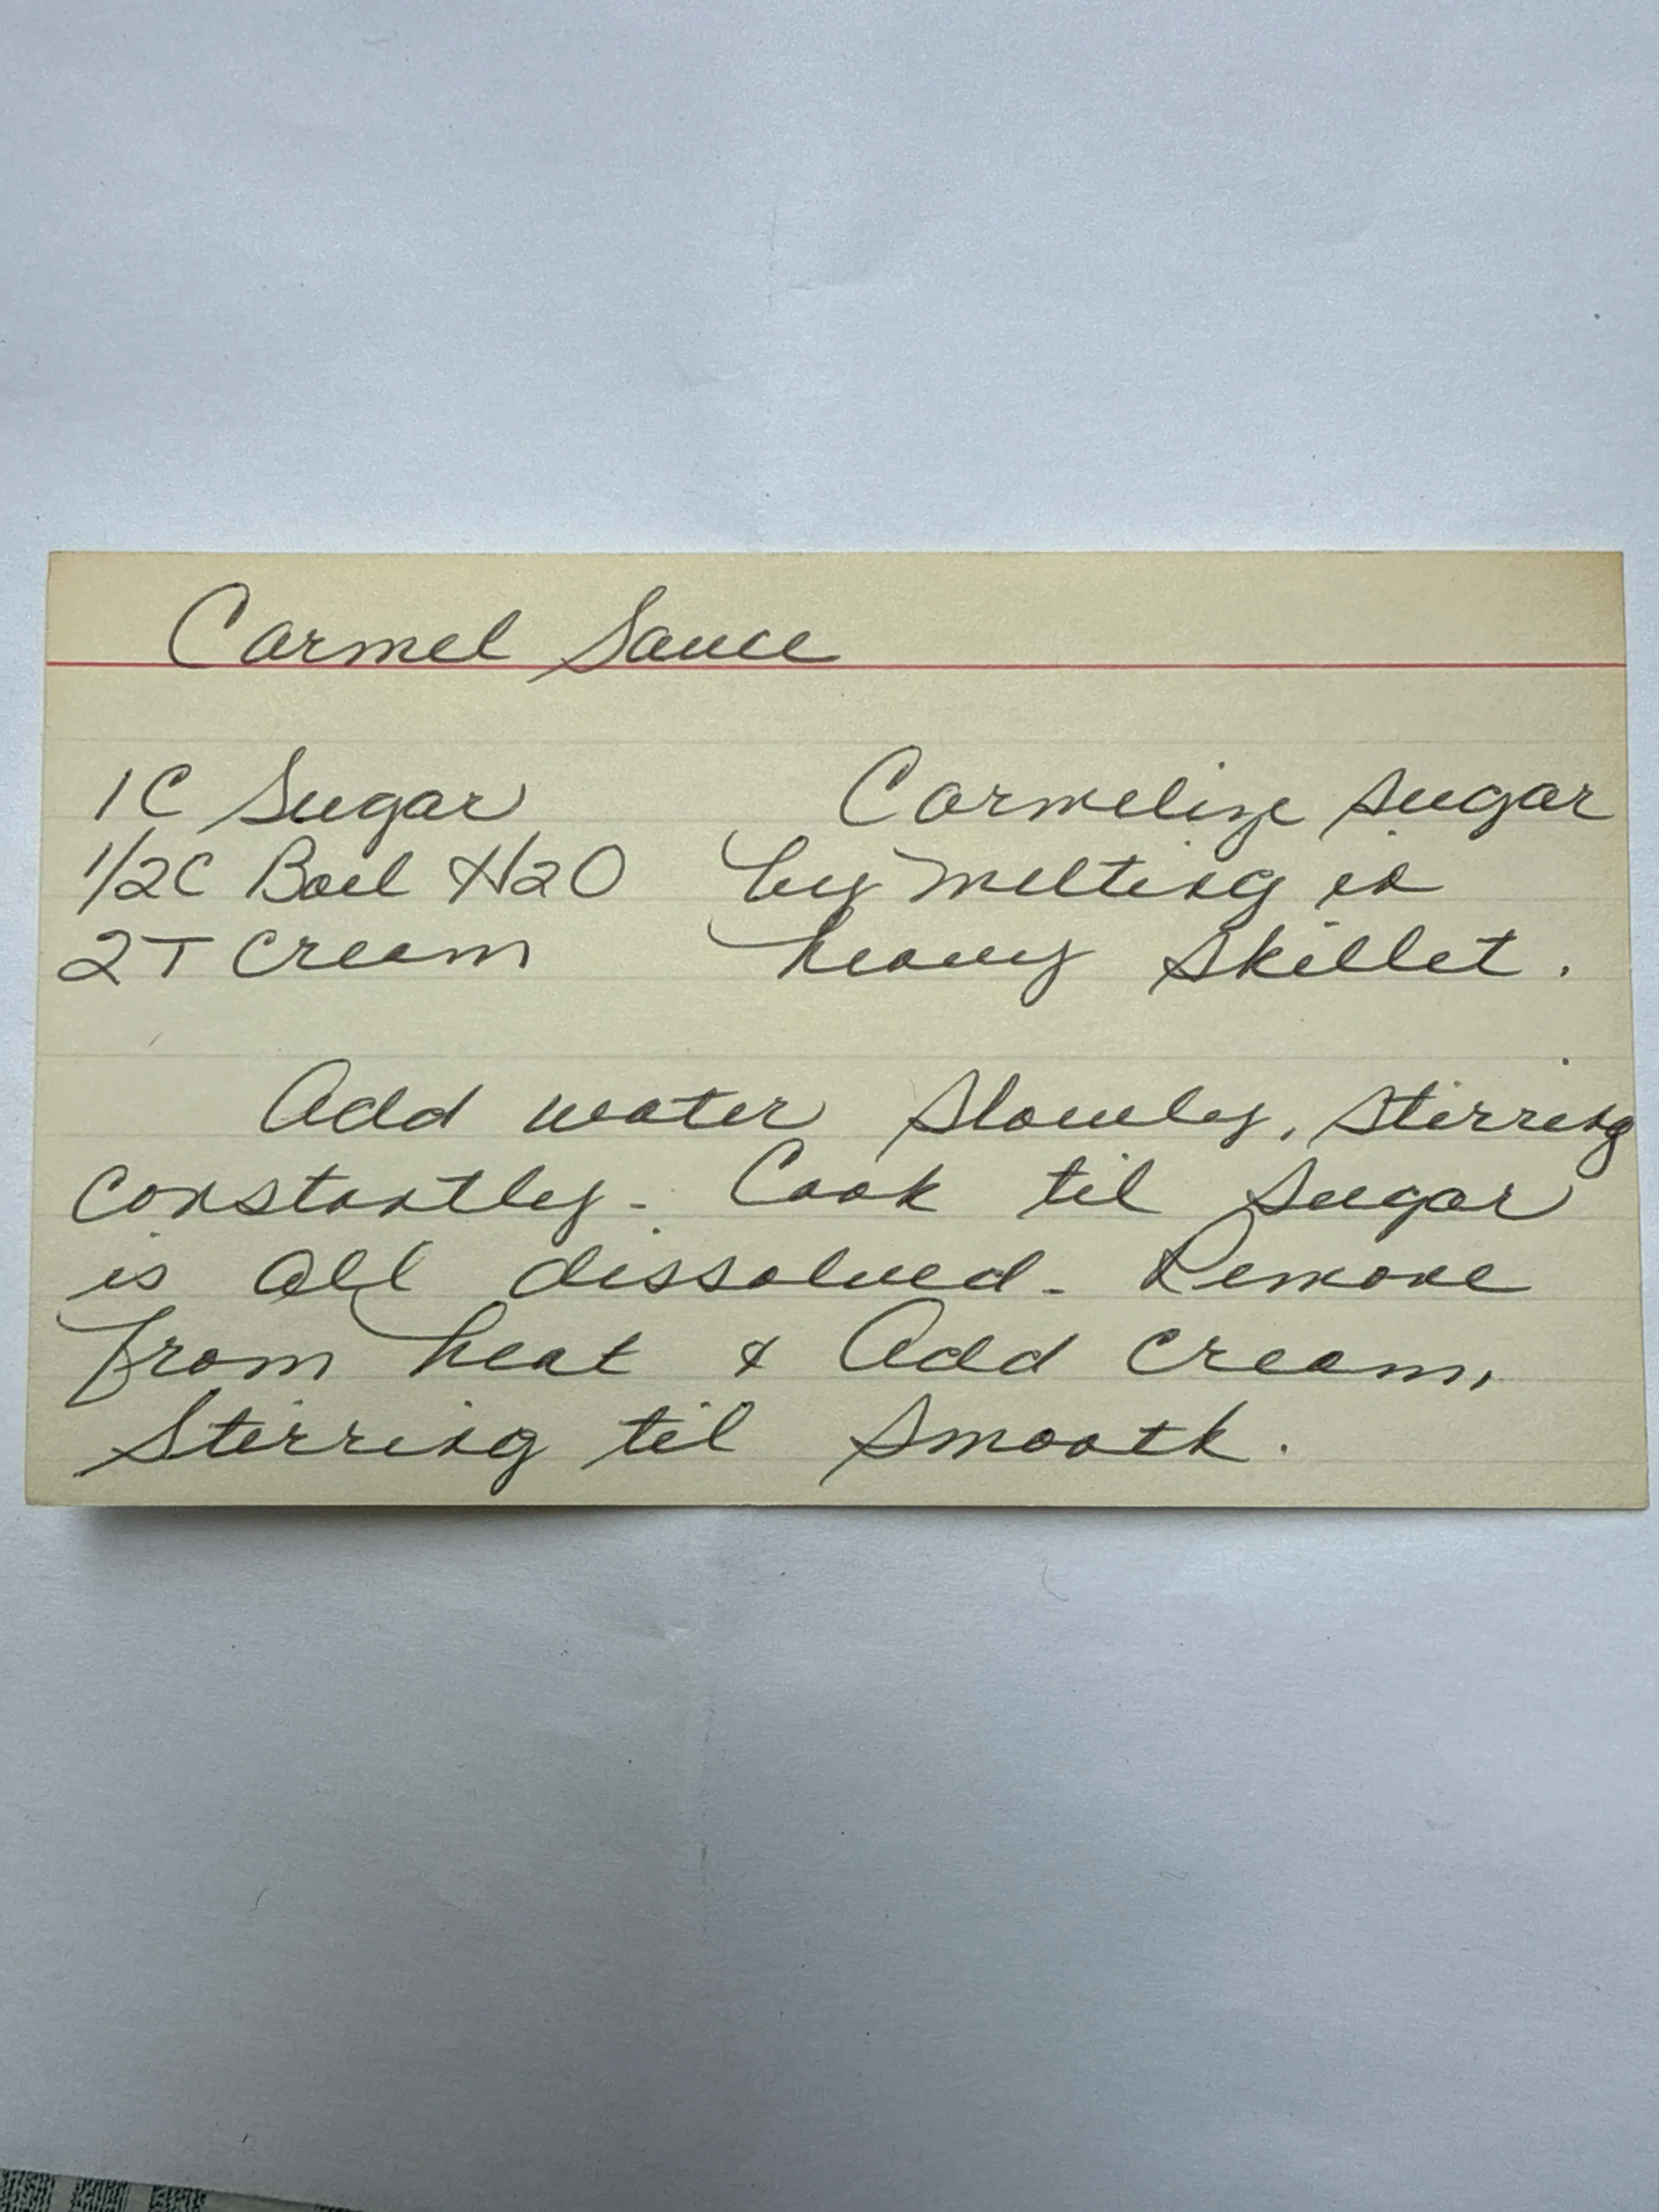 Carmel Sauce
1C Sugar
1/2C Boil H2O
2T Cream
Carmelize sugar
by melting in
heavy skillet.
Add water slowly, stirring
constantly. Cook til sugar
is all dissolved. Remove
from heat & Add cream,
Stirring til smooth.